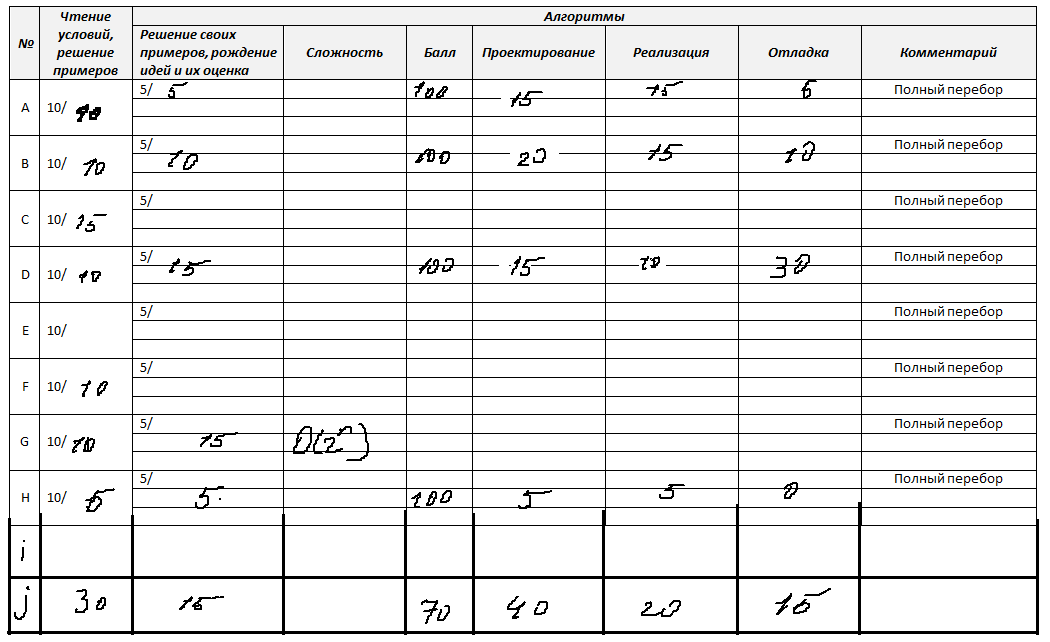 № Чтение условий, решение примеров Алгоритмы
Решение своих примеров, рождение идей и их оценка Сложность Балл Проектирование Реализация Отладка Комментарий
A 10/ 10 5/ 5 100 15 15 5 Полный перебор
B 10/ 10 5/ 10 100 20 15 10 Полный перебор
C 10/ 15 5/ Полный перебор
D 10/ 10 5/ 15 100 15 10 30 Полный перебор
E 10/ 5/ Полный перебор
F 10/ 10 5/ Полный перебор
G 10/ 10 5/ 15 Полный перебор
H 10/ 5 5/ 5 100 5 5 0 Полный перебор
i
j 30 15 70 40 20 15